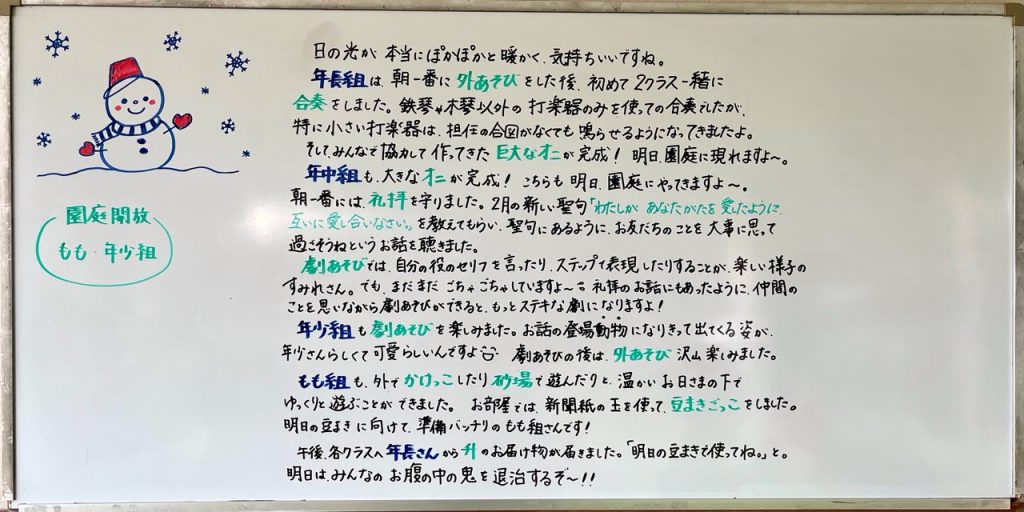 園庭開放
もも・年少組
日の光が、本当にぽかぽかと暖かく、気持ちいいですね。
年長組は、朝一番に外あそびをした後、初めて2クラス一緒に
合奏をしました。鉄琴や木琴以外の打楽器のみを使っての合奏でしたが、
特に小さい打楽器は、担任の合図がなくても鳴らせるようになってきましたよ。
そして、みんなで協力して作ってきた巨大なオニが完成！明日、園庭に現れますよ〜。
年中組も、大きなオニが完成！こちらも明日、園庭にやってきますよ〜。
朝一番には、礼拝を守りました。2月の新しい聖句「わたしがあなたがたを愛したように、
互いに愛し合いなさい。」を教えてもらい、聖句にあるように、お友だちのことを大事に思って
過ごそうねというお話を聴きました。
劇あそびでは、自分の役のセリフを言ったり、ステップで表現したりすることが、楽しい様子の
すみれさん。でも、まだまだごちゃごちゃしていますよ〜。礼拝のお話にもあったように、仲間の
ことを思いながら劇あそびができると、もっとステキな劇になりますよ！
年少組も劇あそびを楽しみました。お話の登場動物になりきって出てくる姿が、
年少さんらしくて可愛らしいんですよ 劇あそびの後は、外あそび沢山楽しみました。
もも組も、外でかけっこしたり砂場で遊んだりと、温かいお日さまの下で
ゆっくりと遊ぶことができました。お部屋では、新聞紙の玉を使って、豆まきごっこをしました。
明日の豆まきに向けて、準備バッチリのもも組さんです！
午後、各クラスへ年長さんから升のお届け物が届きました。「明日の豆まきで使ってね。」と。
明日は、みんなのお腹の中の鬼を退治するぞ〜！！